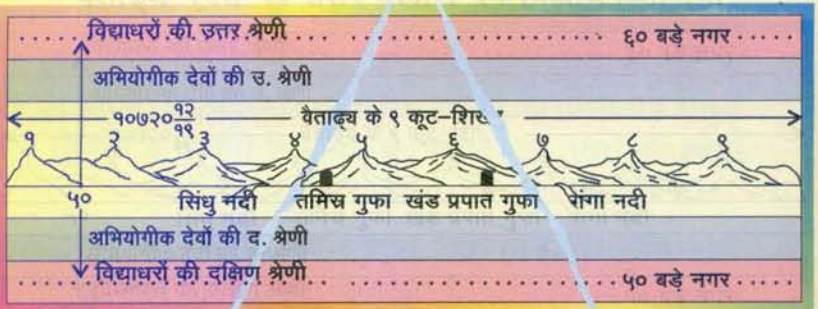 विद्याधरों की उत्तर श्रेणी ६० बड़े नगर
अभियोगीक देवों की उ. श्रेणी
१०७२० १२/१९ वैताढ्य के ९ कूट-शिखर
१ २ ३ ४ ५ ६ ७ ८ ९
५० सिंधु नदी तमिस्र गुफा खंड प्रपात गुफा गंगा नदी
अभियोगीक देवों की द. श्रेणी
विद्याधरों की दक्षिण श्रेणी ५० बड़े नगर